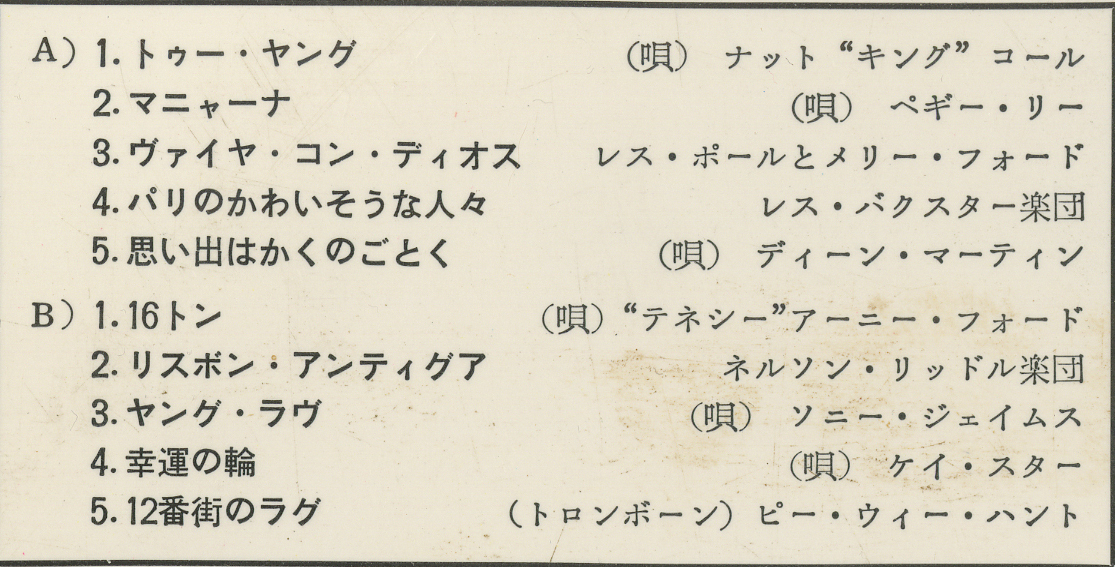 A) 1. トゥー・ヤング (唄) ナット “キング” コール
2. マニャーナ (唄) ペギー・リー
3. ヴァイヤ・コン・ディオス レス・ポールとメリー・フォード
4. パリのかわいそうな人々 レス・バクスター楽団
5. 思い出はかくのごとく (唄) ディーン・マーティン
B) 1. 16トン (唄) “テネシー”アーニー・フォード
2. リスボン・アンティグア ネルソン・リッドル楽団
3. ヤング・ラヴ (唄) ソニー・ジェイムス
4. 幸運の輪 (唄) ケイ・スター
5. 12番街のラグ (トロンボーン) ピー・ウィー・ハント